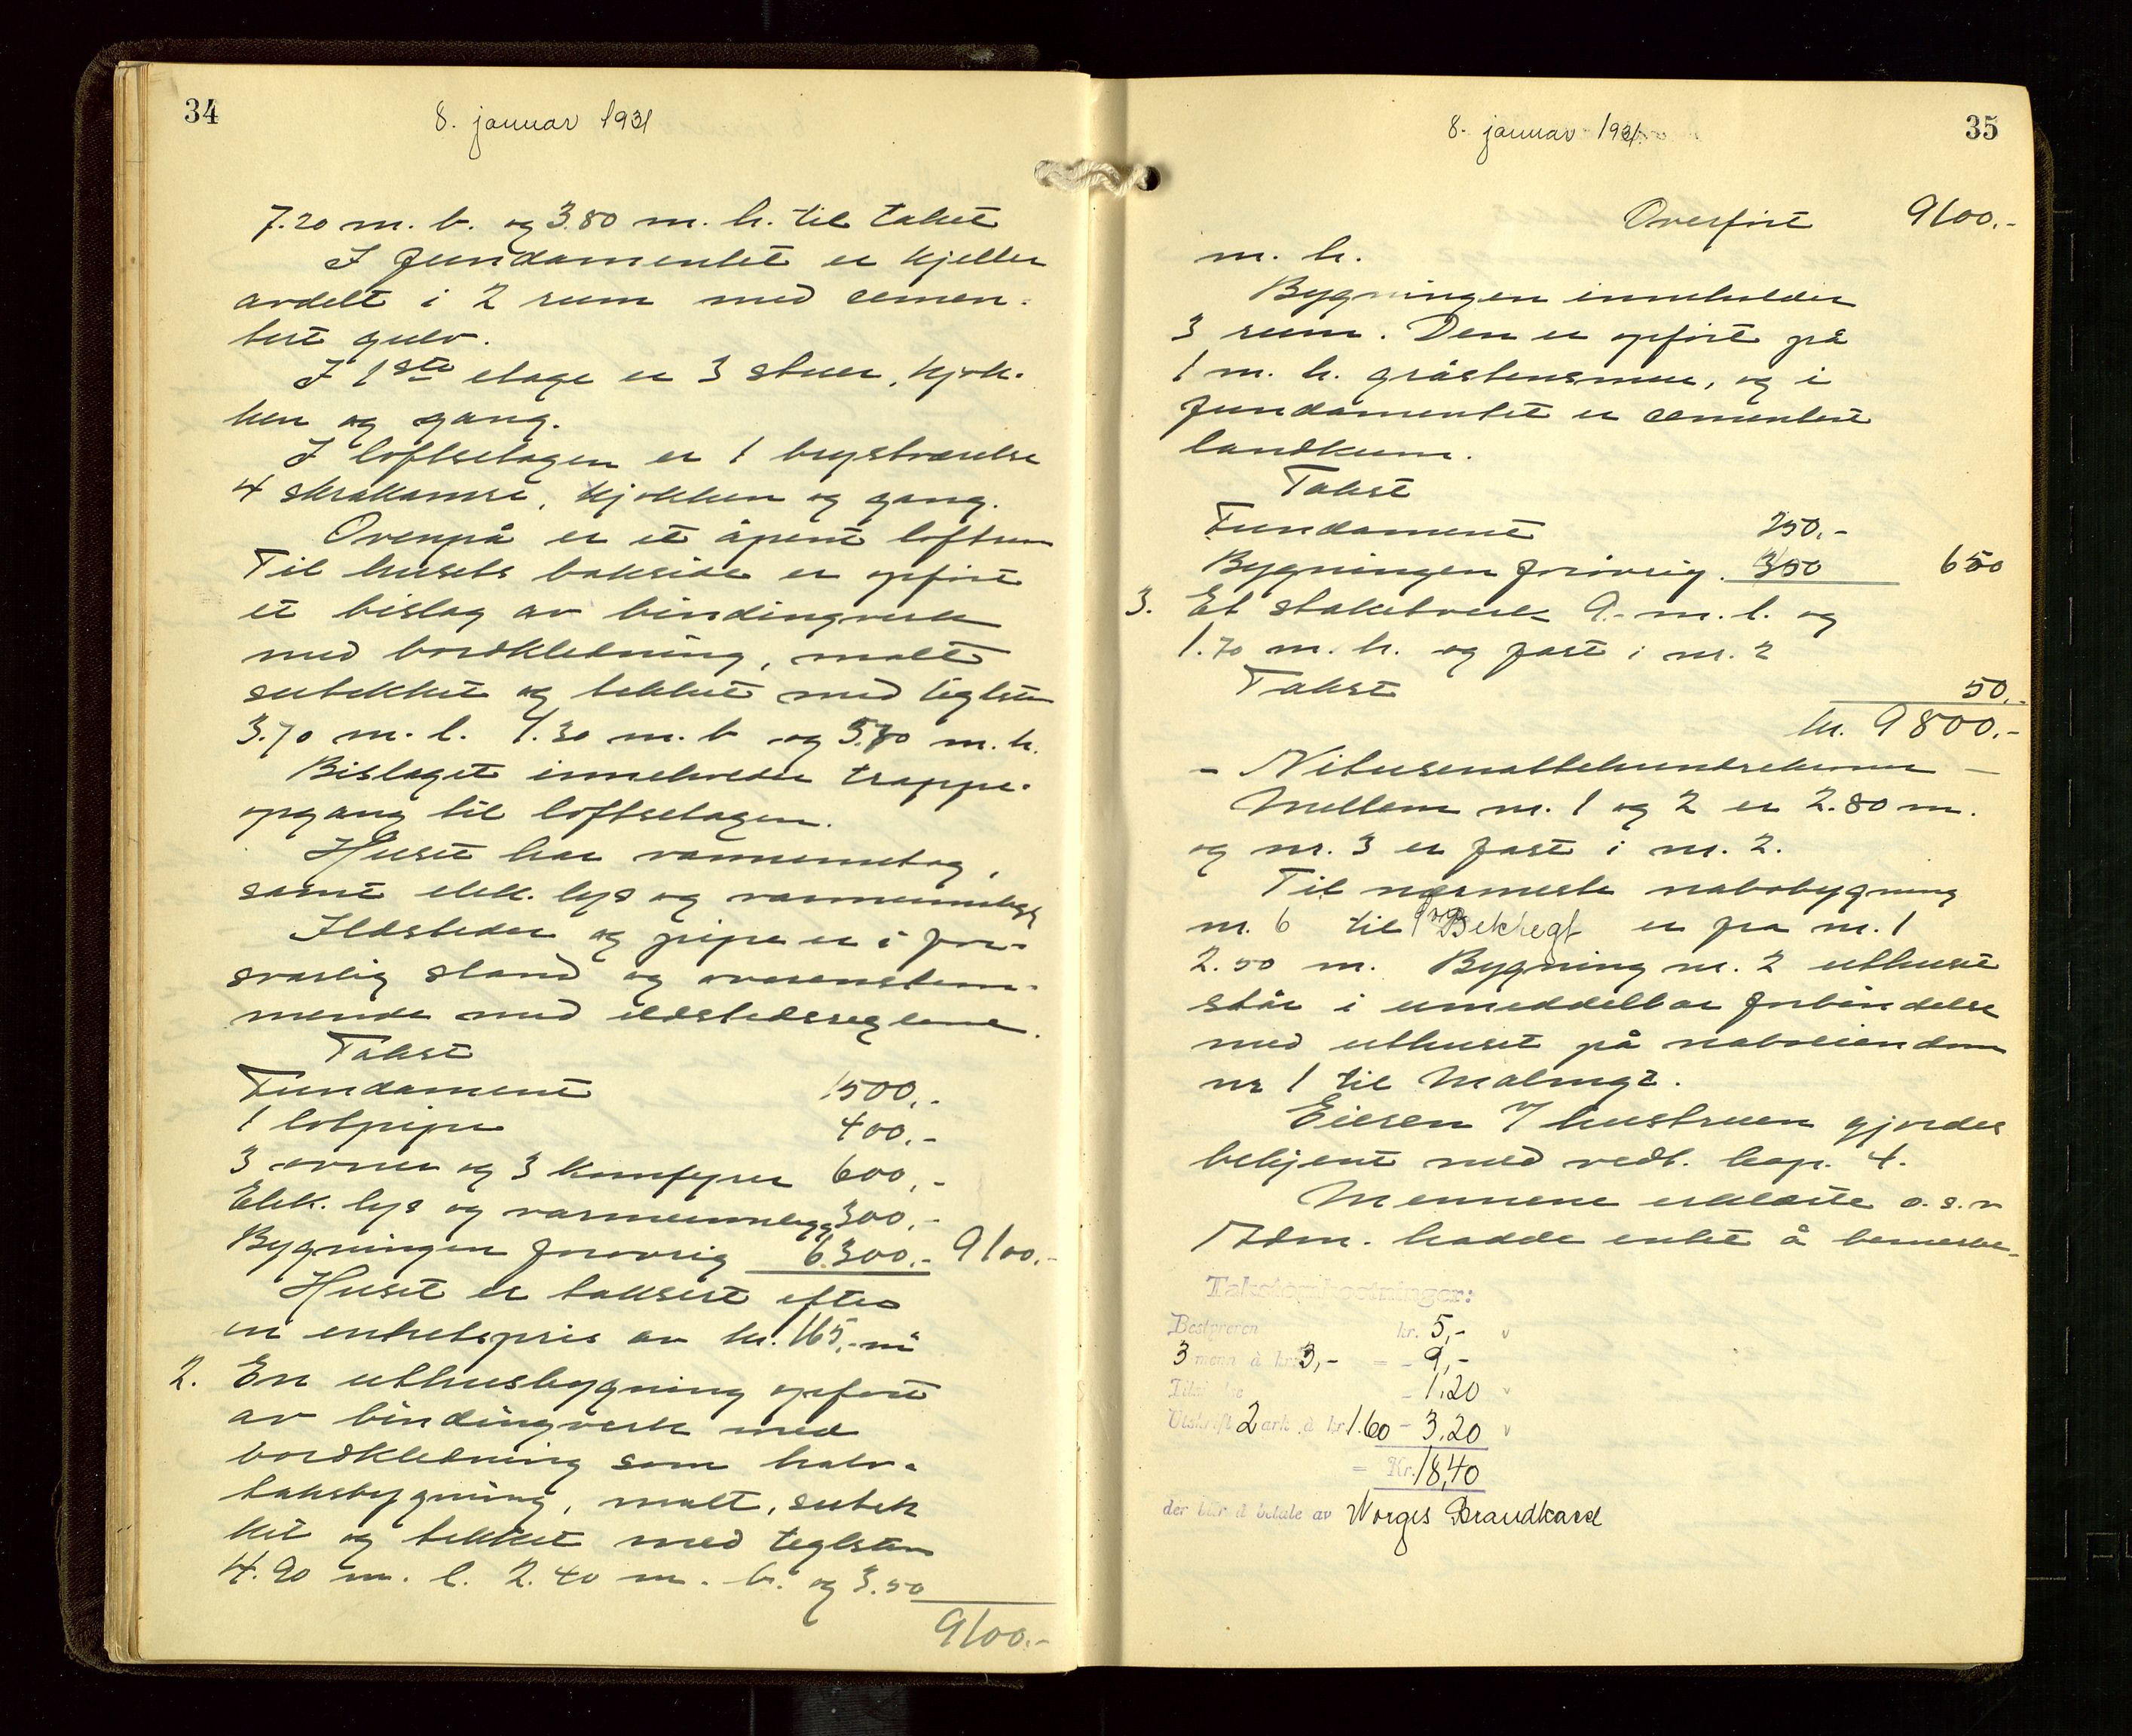 34
8. januar 1931
7.20 m. b. og 3.80 m. h. til taket
I fundamentet er kjeller
avdelt i 2 rum med cemen-
tert gulv.
I 1ste etage er 3 stuer, kjøk-
ken og gang.
I loftsetagen er 1 brystværelse
4 skråkamre, kjøkken og gang.
Ovenpå er et åpent loftrum
Til husets bakside er opført
et bislag av bindingverk
med bordkledning, malt
sutekket og tekket med teglsten
3.70 m. l. 1.30 m. b. og 5.70 m. h.
Bislaget inneholder trappe-
opgang til loftsetagen.
Huset har vanninnlag,
samt elek. lys og varmeinnlegg
Ildsteder og pipe er i for-
svarlig stand og overenstem-
mende med ildstedsreglene.
Takst
Fundament 1500.-
1 løtpipe 400.-
3 ovner og 3 komfyrer 600.-
Elek. lys og varmeinnlegg 300.-
Bygningen forøvrig 6.300.- 9100.-
Huset er taksert efter
en enhetspris av kr. 165.- m²
2. En uthusbygning opført
av bindingverk med
bordkledning som halv-
taksbygning, malt, sutek
ket og tekket med teglsten
4.90 m. l. 2.40 m. b. og 3.50
9100.-
35
8. januar 1931
Overført 9100.-
m. h.
Bygningen inneholder
3 rum. Den er opført på
1 m. h. gråstensmur, og i
fundamentet er cementert
landkum.
Takst
Fundament 250.-
Bygningen forøvrig. 650
3. Et stakitverk 9.- m. l. og
1.70 m. h. og fast i nr. 2
Takst 50.-
kr. 9800.-
- Nitusenattehundrekroner -
Mellem nr. 1 og 2 er 2.80 m.
og nr. 3 er fast i nr. 2.
Til nærmeste nabobygning
nr. 6 til er fra nr. 1
2.50 m. Bygning nr. 2 uthuset
står i umeddelbar forbindelse
med uthuset på naboeiendom
nr 1 til Malmgt.
Eieren v/ hustruen gjordes
bekjent med vedt. kap. 4.
Mennene erklærte o. s. v
Rdm. hadde intet å bemerke.
Takstomkostninger:
Bestyreren kr. 5,-
3 menn à kr. 3,- = - 9,-
- 1.20
Utskrift 2 ark à kr 1.60 - 3.20
= Kr. 18,40
der blir å betale av Norges Brandkasse